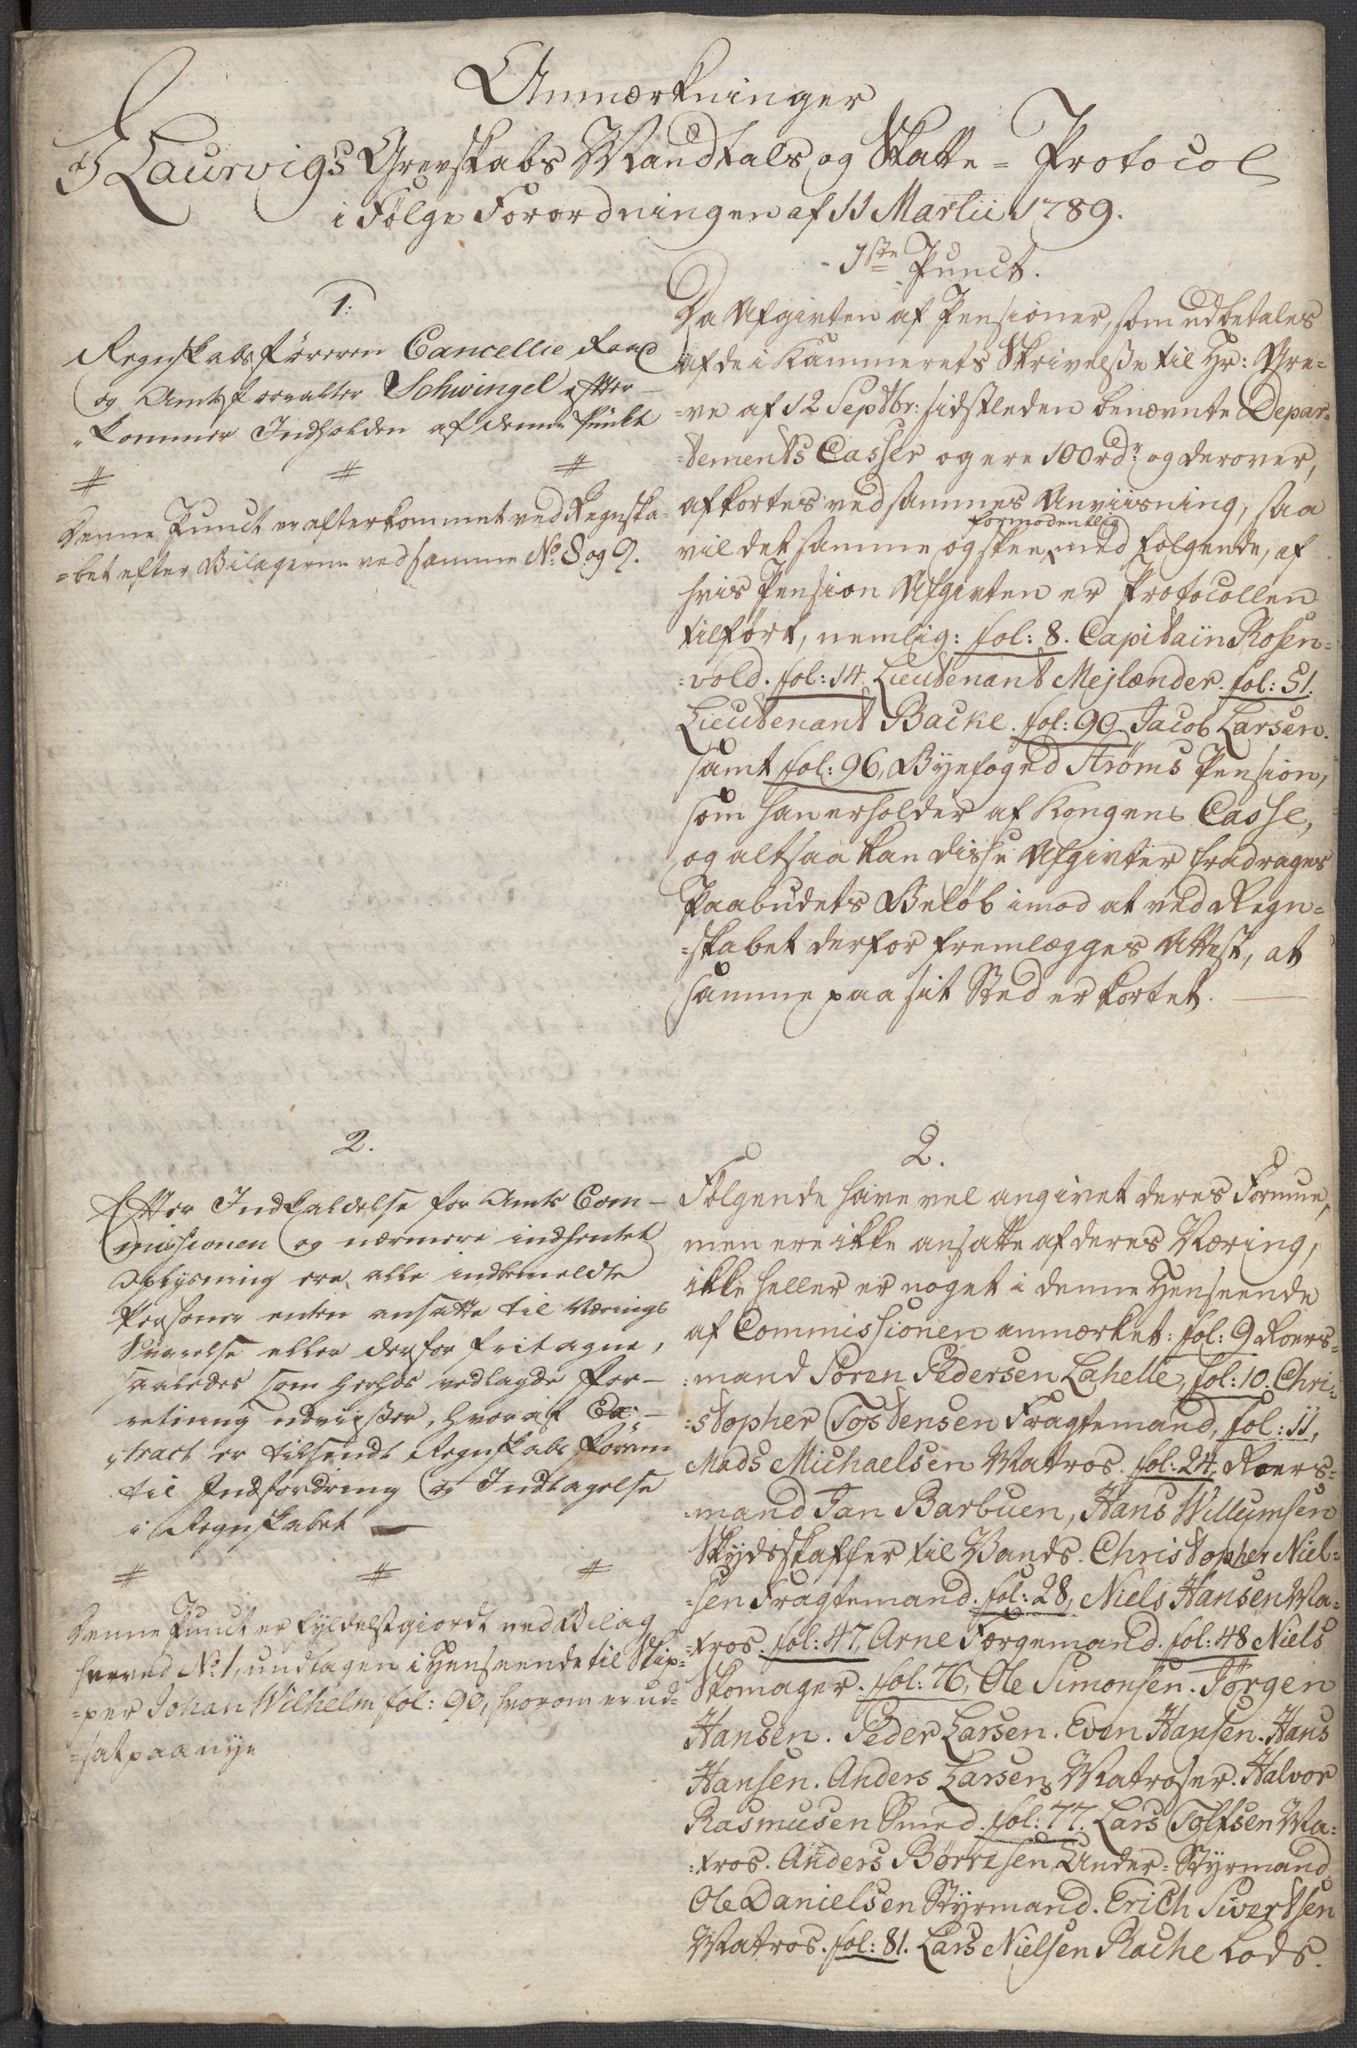 Anmærkninger
I Laurvigs Grevskabs Mandtals og Skatte = Protocol
i Følge Forordningen af 11 Martii 1789.
1:
Regnskabsføreren Cancellie Raad
og Amtsforvalter Schwingel efter-
kommer Indholden af denne Punkt
# # #
Denne Punct er efterkommet ved Regnska-
=bet efter Bilagerne ved samme No 8 og 9.
1ste Punct.
Da Afgivten af Pensioner, som udbetales
af de i Kammerets Skrivelße til Hr: Gre-
=ve af 12 Septbr: sidstleden benævnte Depar-
=tements Casser og ere 100 rdr og derover,
afkortes ved sammes Anviisning, saa
formodentlig
vil det samme og skee med følgende, af
hvis Pension Afgivten er Protocollen
tilført, nemlig: fol: 8. Capitain Rosen-
=vold. fol: 14. Lieutenant Mejlænder. fol: 51.
Lieutenant Backe. fol: 90 Jacob Larsen.
samt fol: 96, Byefoged Strøms Pension,
som han erholder af Kongens Casse,
og altsaa kan disse Afgivter fradrages
Paabudets Beløb imod at ved Regn-
=skabet derfor fremlægges Attest, at
samme paa sit Sted er kortet.
2.
Efter Indkaldelse for Amts Com-
missionen og nærmere indhentet
Oplysning ere alle indbemeldte
Personer enten ansatte til Nærings
Svarelse eller derfor fritagne,
saaledes som herhos vedlagde For-
retning udviißer, hvoraf Ex-
tract er tilsendt Regnskabs Føreren
til Indfordring og Indtagelse
i Regnskabet
# # #
Denne Punct er fyldestgiordt ved Bilag
herved No 1, undtagen i Henseende til Skip-
=per Johan Wilhelm fol: 90, hvorom er ud-
=sat paa nye
2.
Følgende have vel angivet deres Formue,
men ere ikke ansatte af deres Næring,
ikke heller er noget i denne Henseende
af Commissionen anmærket: fol: 9 Roers-
=mand Søren Pedersen Lahelle, fol: 10. Chri-
=stopher Tostensen Fragtemand, fol: 11,
Mads Michaelsen Matros. fol: 24, Roers-
=mand Jan Barbuen, Hans Willumsen
Skydsskaffer til Vands. Christopher Niel-
=sen Fragtemand. fol: 28, Niels Hansen Ma-
=tros. fol: 47, Arne Færgemand. fol: 48 Niels
Skomager. fol: 76, Ole Simonsen. Jørgen
Hansen. Peder Larsen. Even Hansen. Hans
Hansen. Anders Larsen, Matroser. Halvor
Rasmusen Smed. fol: 77. Lars Tolfsen Ma-
=tros. Anders Børresen Under=Styrmand
Ole Danielsen Styrmand. Erich Sivertsen
Matros. fol: 81. Lars Nielsen Rache Lods.